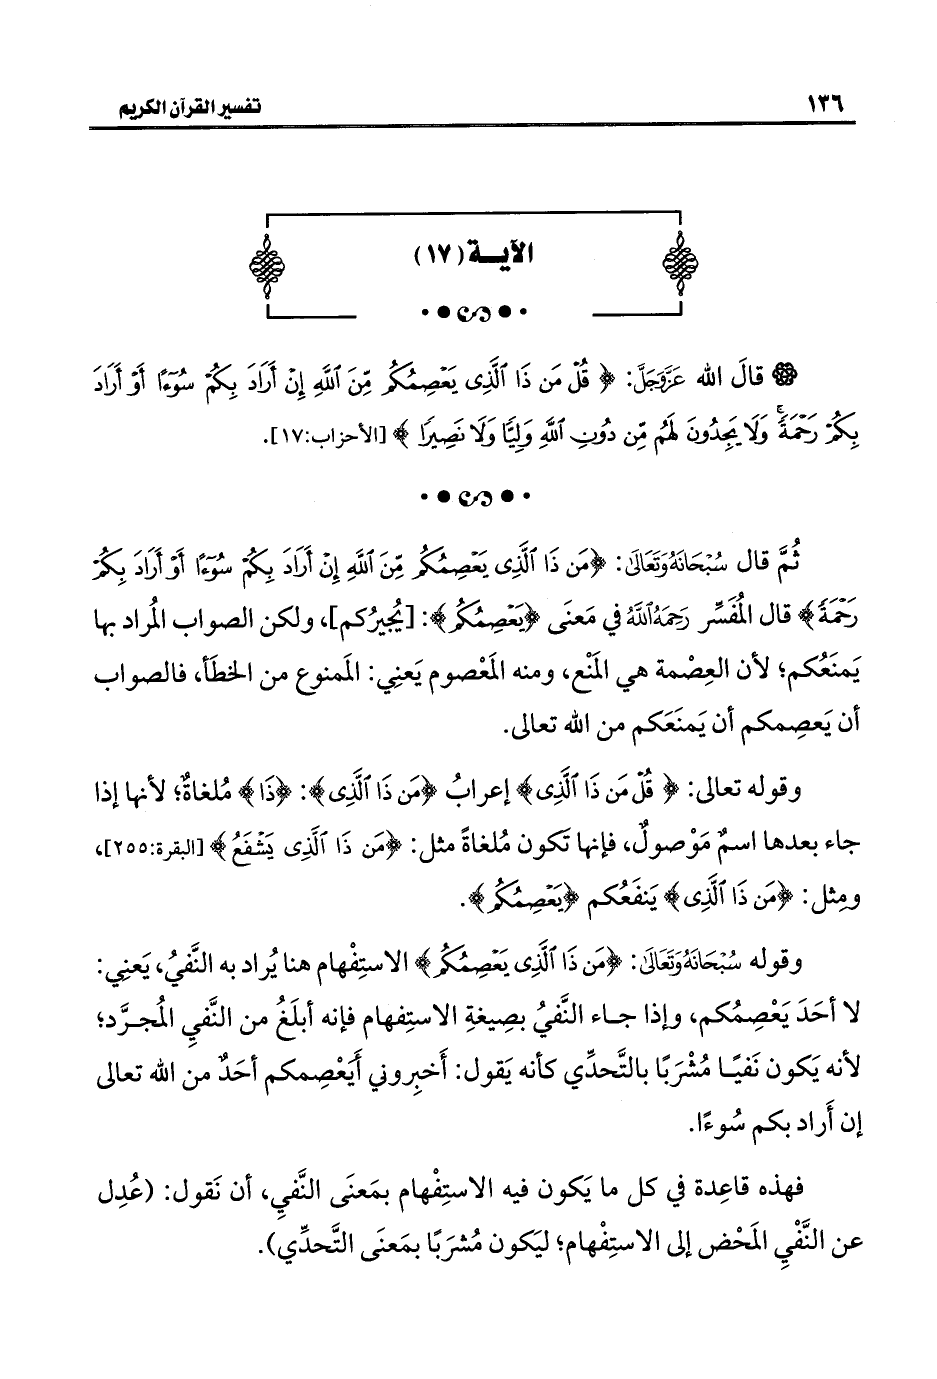 ١٣٦
تفسير القرآن الكريم
الآيــة (١٧)
قالَ الله عَزَّوَجَلَّ: ﴿ قُلْ مَن ذَا ٱلَّذِى يَعْصِمُكُم مِّنَ ٱللَّهِ إِنْ أَرَادَ بِكُمْ سُوٓءًا أَوْ أَرَادَ
بِكُمْ رَحْمَةً ۚ وَلَا يَجِدُونَ لَهُم مِّن دُونِ ٱللَّهِ وَلِيًّا وَلَا نَصِيرًا ﴾ [الأحزاب:١٧].
ثُمَّ قال سُبْحَانَهُ وَتَعَالَىٰ: ﴿مَن ذَا ٱلَّذِى يَعْصِمُكُم مِّنَ ٱللَّهِ إِنْ أَرَادَ بِكُمْ سُوٓءًا أَوْ أَرَادَ بِكُمْ
رَحْمَةً﴾ قال المُفَسِّر رَحِمَهُ ٱللَّهُ في مَعنَى ﴿يَعْصِمُكُم﴾: [يُجيرُكم]، ولكن الصواب المُراد بها
يَمنَعُكم؛ لأن العِصْمة هي المَنْع، ومنه المَعْصوم يَعنِي: المَمنوع من الخطَأ، فالصواب
أن يَعصِمكم أن يَمنَعَكم من الله تعالى.
وقوله تعالى: ﴿ قُلْ مَن ذَا ٱلَّذِى﴾ إعرابُ ﴿مَن ذَا ٱلَّذِى﴾: ﴿ذَا﴾ مُلغاةٌ؛ لأنها إذا
جاء بعدها اسمٌ مَوْصولٌ، فإنها تَكون مُلغاةً مثل: ﴿مَن ذَا ٱلَّذِى يَشْفَعُ﴾ [البقرة:٢٥٥]،
ومِثل: ﴿مَن ذَا ٱلَّذِى﴾ يَنفَعُكم ﴿يَعْصِمُكُم﴾.
وقوله سُبْحَانَهُ وَتَعَالَىٰ: ﴿مَن ذَا ٱلَّذِى يَعْصِمُكُم﴾ الاستِفْهام هنا يُراد به النَّفيُ، يَعنِي:
لا أحَدَ يَعْصِمُكم، وإذا جـاء النَّفيُ بصِيغةِ الاستِفهام فإنه أبلَغُ من النَّفيِ المُجـرَّد؛
لأنه يَكون نَفيًـا مُشْرَبًا بالتَّحدِّي كأنه يَقول: أَخبِروني أَيَعْصِمكم أحَدٌ من الله تعالى
إن أَراد بكم سُوءًا.
فهذه قاعِدة في كل ما يَكون فيه الاستِفْهام بمَعنَى النَّفيِ، أن نَقول: (عُدِل
عن النَّفْيِ المَحْض إلى الاستِفْهام؛ ليَكون مُشرَبًا بمَعنَى التَّحدِّي).